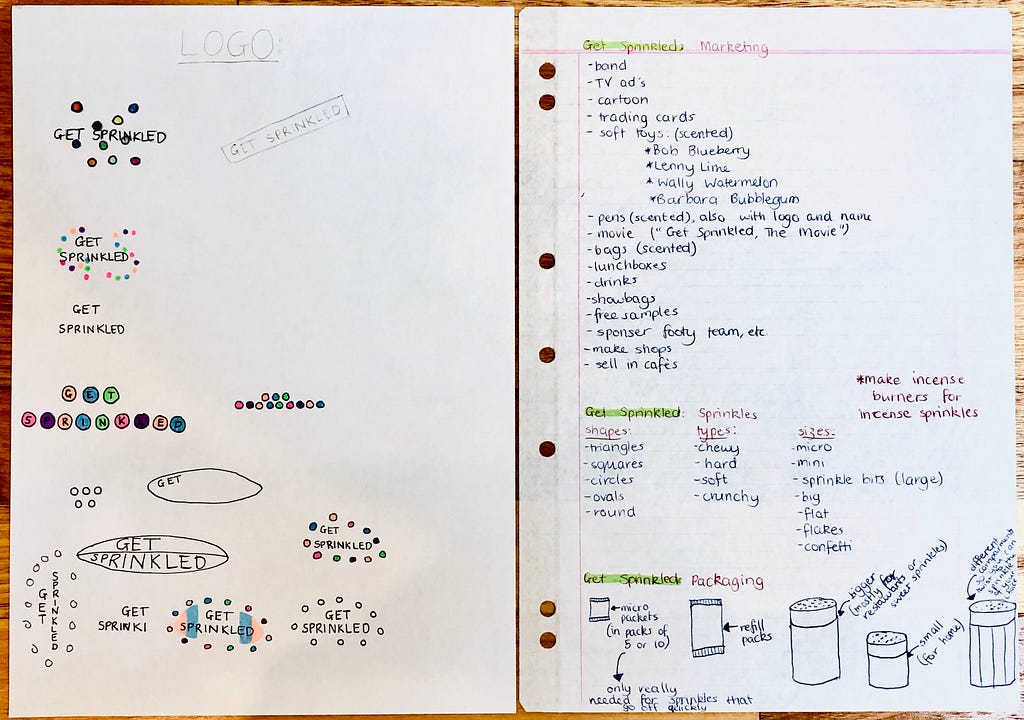 LOGO:
GET SPRINKLED
GET SPRINKLED
GET
SPRINKLED
GET
SPRINKLED
GET
SPRINKLED
GET
GET
SPRINKLED
GET
SPRINKLED
GET
SPRINKLED
GET
SPRINKI
GET
SPRINKLED
GET
SPRINKLED
Get Sprinkled: Marketing
- band
- TV ad's
- cartoon
- trading cards
- soft toys: (scented)
*Bob Blueberry
*Lenny Lime
*Wally Watermelon
*Barbara Bubblegum
- pens (scented), also with logo and name
- movie ("Get Sprinkled, The Movie")
- bags (scented)
- lunchboxes
- drinks
- showbags
- free samples
- sponser footy team, etc
- make shops
- sell in cafès
*make incense
burners for
incense sprinkles
Get Sprinkled: Sprinkles
shapes:
- triangles
- squares
- circles
- ovals
- round
types:
- chewy
- hard
- soft
- crunchy
sizes:
- micro
- mini
- sprinkle bits (large)
- big
- flat
- flakes
- confetti
Get Sprinkled: Packaging
micro
packets
(in packs of
5 or 10)
only really
needed for sprinkles that
go off quickly
refill
packs
bigger
(mostly for
restaurants or
sweet sprinkles)
small
(for home)
different
compartments